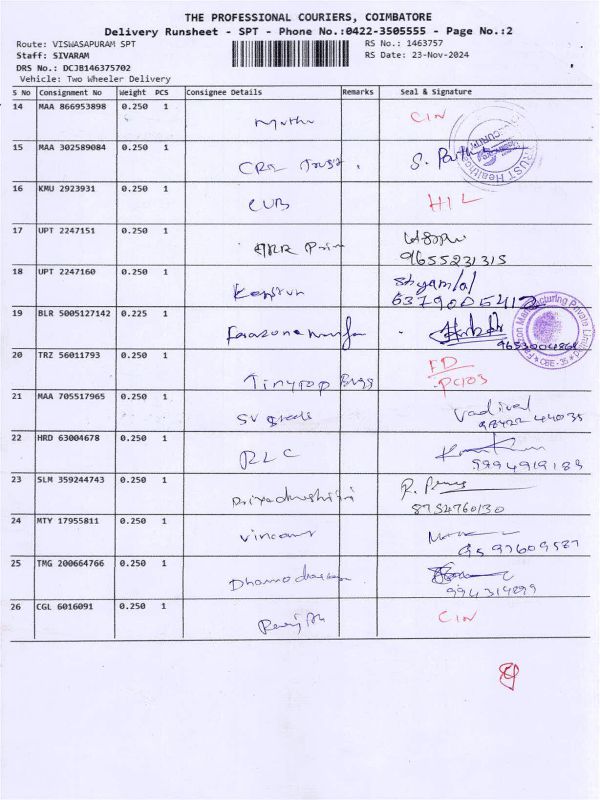 THE PROFESSIONAL COURIERS, COIMBATORE
Delivery Runsheet - SPT - Phone No.:0422-3505555 - Page No.:2
Route: VISWASAPURAM SPT RS No.: 1463757
Staff: SIVARAM RS Date: 23-Nov-2024
DRS No.: DCJB146375702
Vehicle: Two Wheeler Delivery
S No Consignment No Weight PCS Consignee Details Remarks Seal & Signature
14 MAA 866953898 0.250 1 Muthu CIN
15 MAA 302589084 0.250 1 Trust S.
16 KMU 2923931 0.250 1 CUB HIL
17 UPT 2247151 0.250 1 9655231315
18 UPT 2247160 0.250 1 Shyamlal
19 BLR 5005127142 0.225 1
20 TRZ 56011793 0.250 1 Tinytop Bugs FD
21 MAA 705517965 0.250 1 SV Vadival
98422 44035
22 HRD 63004678 0.250 1 RLC
9994919189
23 SLM 359244743 0.250 1 R.
8754760130
24 MTY 17955811 0.250 1 Vincent
9597609587
25 TMG 200664766 0.250 1
26 CGL 6016091 0.250 1 CIN